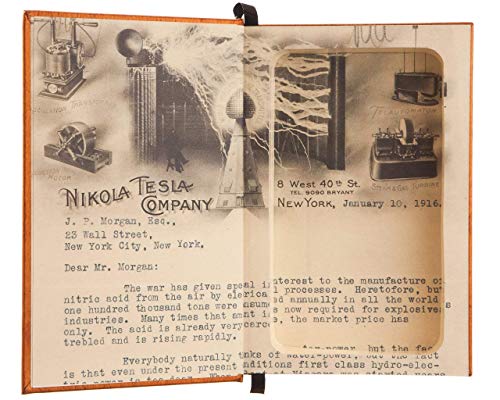 OSCILLATION TRANSFORMER
TELAUTOMATON
MOTOR
STEAM & GAS TURBINE
NIKOLA TESLA
COMPANY
8 West 40th St.
TEL. 9090 BRYANT
NEW YORK, January 10, 1916.
J. P. Morgan, Esq.,
23 Wall Street,
New York City, New York.
Dear Mr. Morgan:
The war has given speal interest to the manufacture of
nitric acid from the air by elerical processes. Heretofore, but
one hundred thousand tons were onsumed annually in all the world
industries. Many times that amnt is now required for explosives
only. The acid is already verycarce, the market price has
trebled and is rising rapidly.
Everybody naturally inks of water-power, but the fact
is that even under the present nditions first class hydro-elec-
tric power is too dear. When